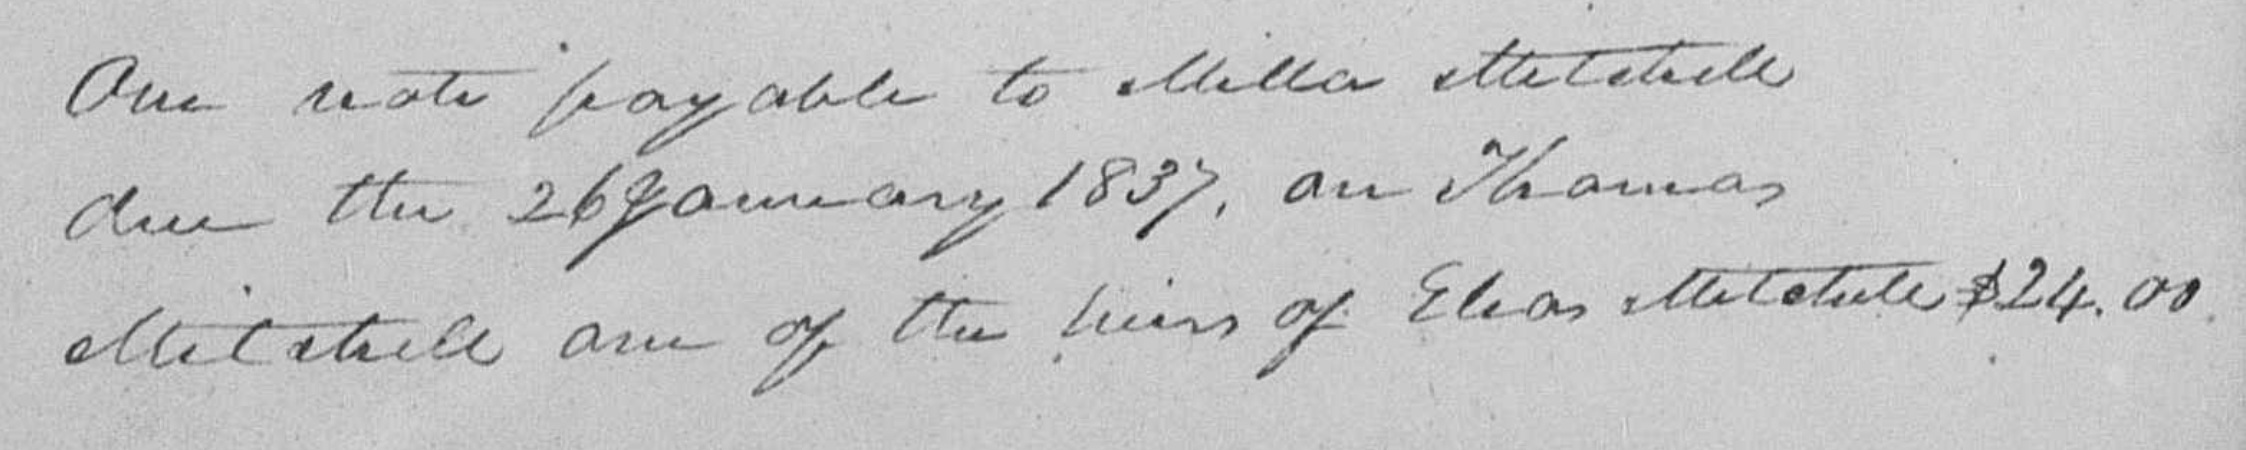 One note payable to Milla Mitchell
due the 26 January 1837, on Thomas
Mitchell one of the heirs of Elias Mitchell $24.00